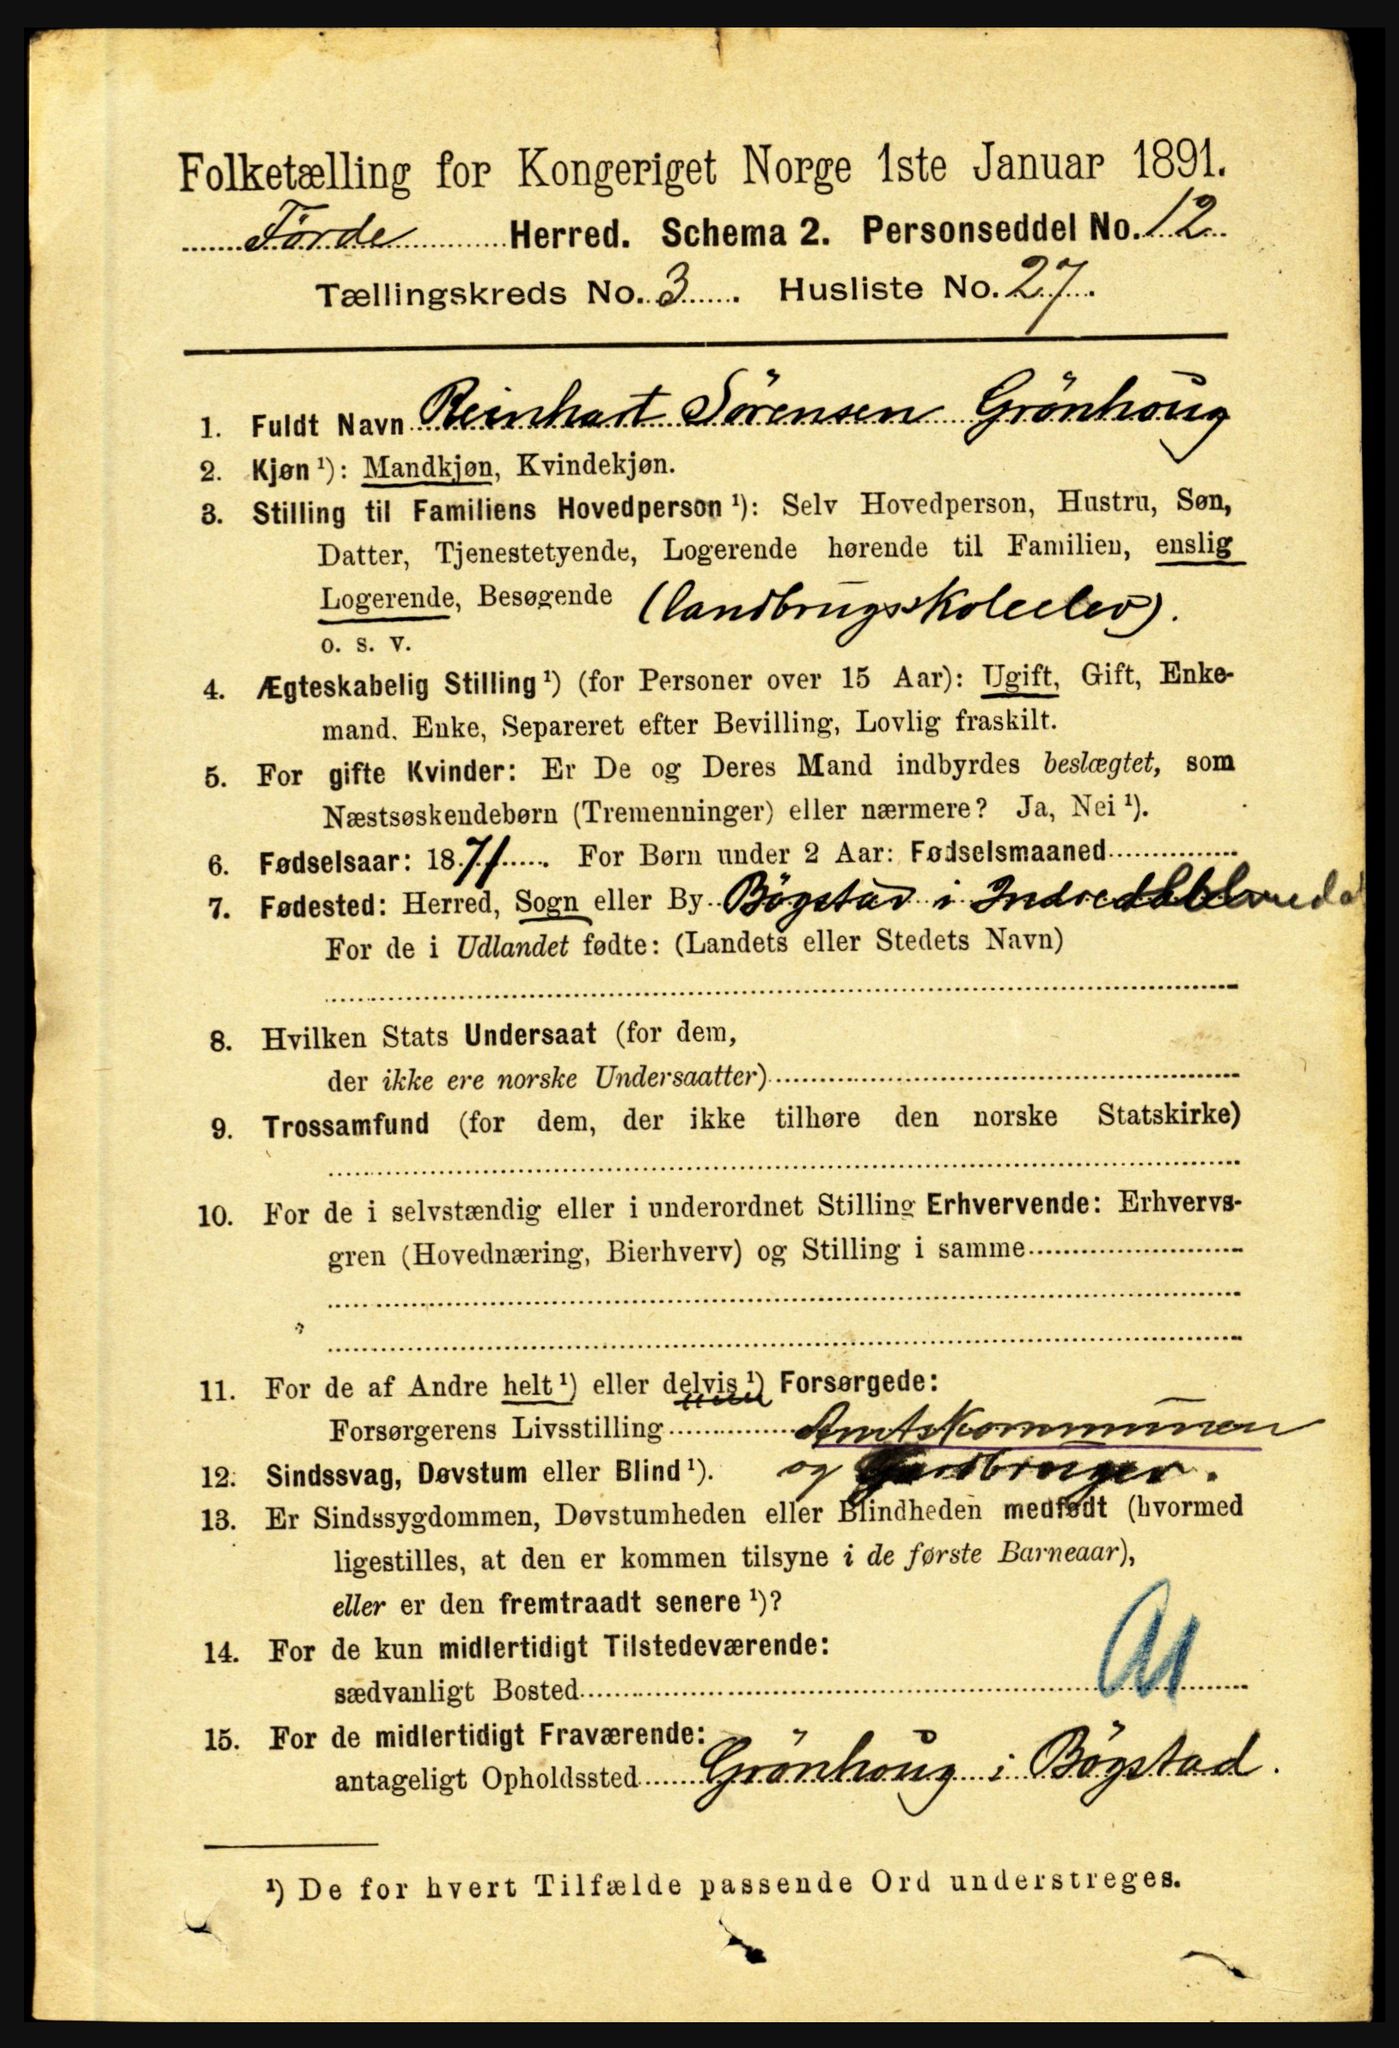 Folketælling for Kongeriget Norge 1ste Januar 1891.
Førde Herred. Schema 2. Personseddel No. 12
Tællingskreds No. 3. Husliste No. 27.
1. Fuldt Navn Reinhart Sörensen Grönhoug
2. Kjøn ¹): Mandkjøn, Kvindekjøn.
3. Stilling til Familiens Hovedperson ¹): Selv Hovedperson, Hustru, Søn,
Datter, Tjenestetyende, Logerende hørende til Familien, enslig
Logerende, Besøgende (landbrugsskoleelev).
o. s. v.
4. Ægteskabelig Stilling ¹) (for Personer over 15 Aar): Ugift, Gift, Enke-
mand, Enke, Separeret efter Bevilling, Lovlig fraskilt.
5. For gifte Kvinder: Er De og Deres Mand indbyrdes beslægtet, som
Næstsøskendebørn (Tremenninger) eller nærmere? Ja, Nei ¹).
6. Fødselsaar: 1871. For Børn under 2 Aar: Fødselsmaaned
7. Fødested: Herred, Sogn eller By Bögstad i
For de i Udlandet fødte: (Landets eller Stedets Navn)
8. Hvilken Stats Undersaat (for dem,
der ikke ere norske Undersaatter)
9. Trossamfund (for dem, der ikke tilhøre den norske Statskirke)
10. For de i selvstændig eller i underordnet Stilling Erhvervende: Erhvervs-
gren (Hovednæring, Bierhverv) og Stilling i samme
11. For de af Andre helt ¹) eller delvis ¹) Forsørgede:
Forsørgerens Livsstilling Amtskommunen
12. Sindssvag, Døvstum eller Blind ¹). og Gardbruger.
13. Er Sindssygdommen, Døvstumheden eller Blindheden medfødt (hvormed
ligestilles, at den er kommen tilsyne i de første Barneaar),
eller er den fremtraadt senere ¹)?
14. For de kun midlertidigt Tilstedeværende:
sædvanligt Bosted
15. For de midlertidigt Fraværende:
antageligt Opholdssted Grönhoug i Bögstad.
¹) De for hvert Tilfælde passende Ord understreges.